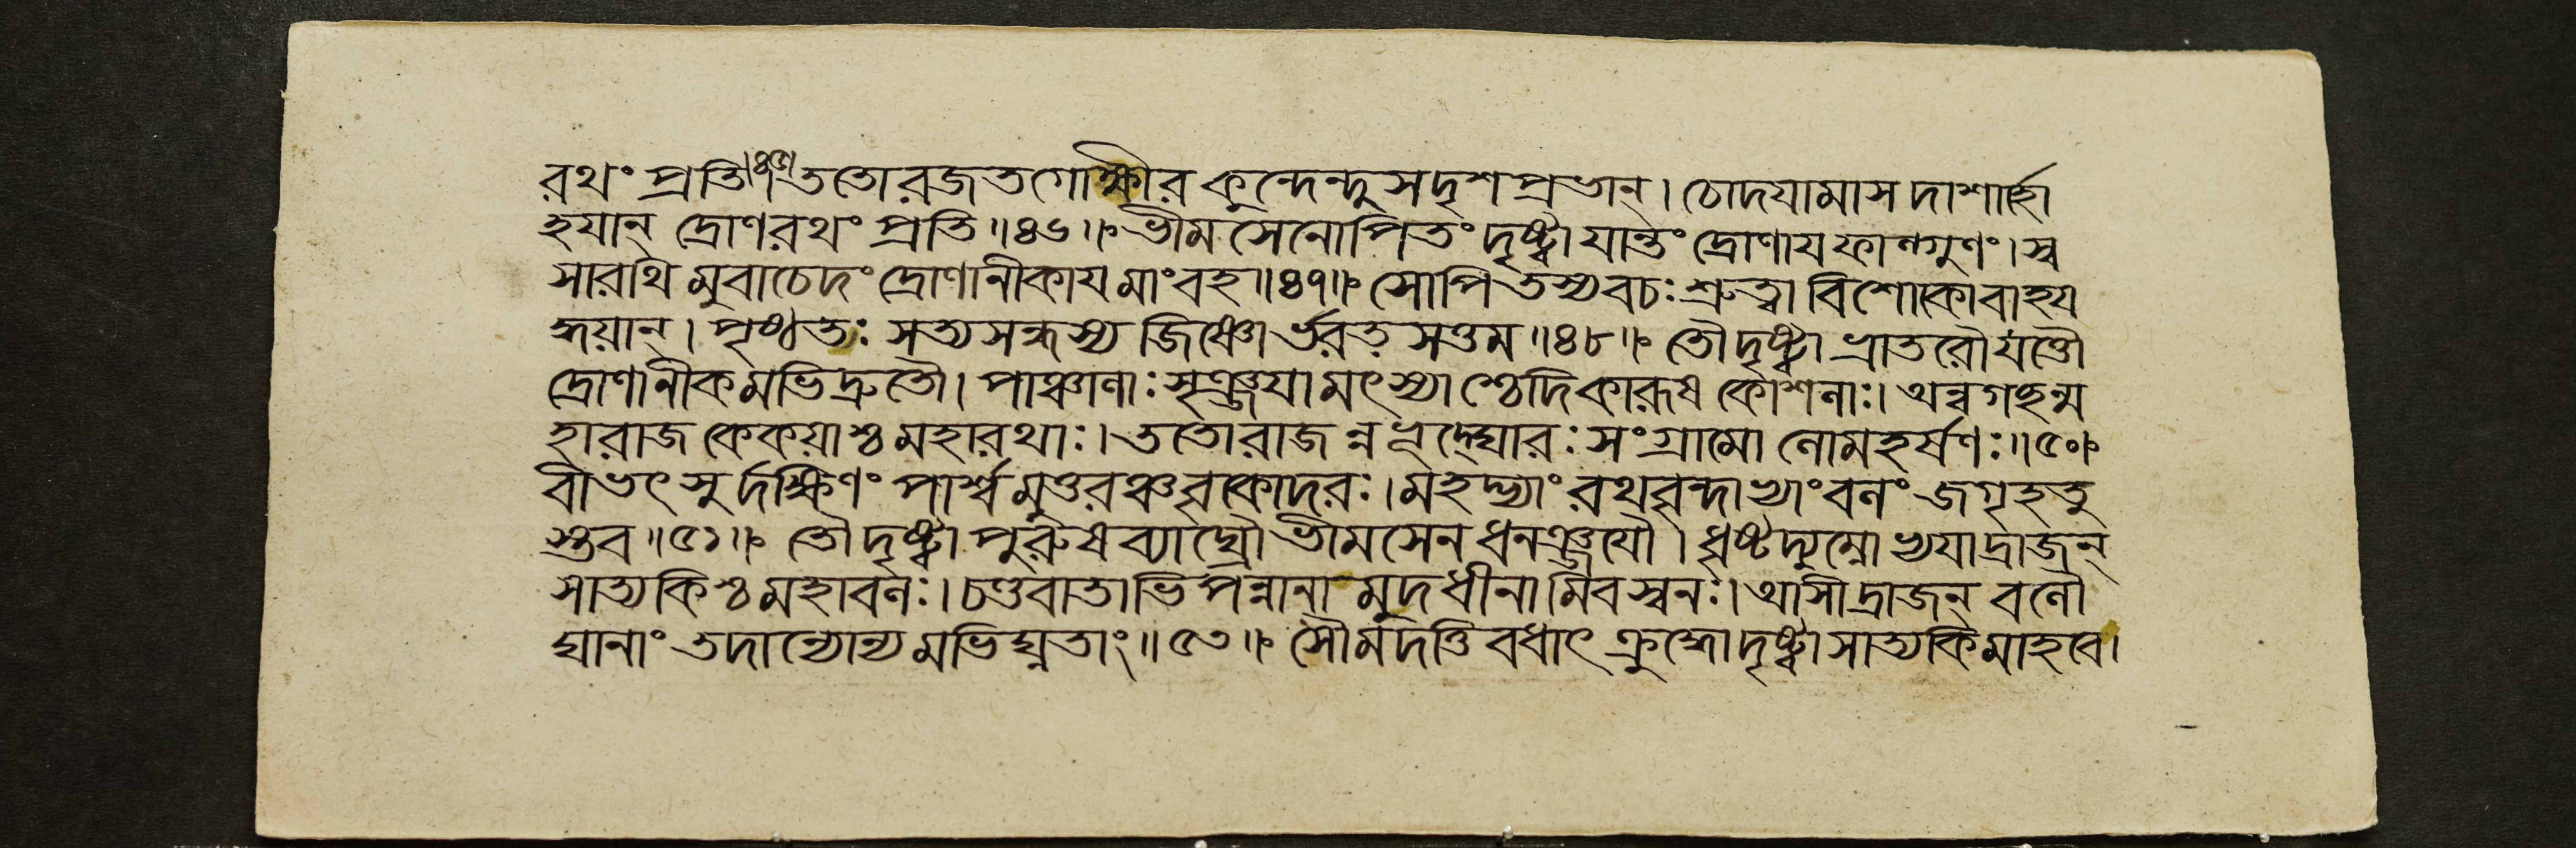 রথং প্রতি॥৪৫॥ততোরজতগোক্ষীরকুন্দেন্দুসদৃশপ্রভান্। চোদযামাসদাশার্হো
হযান্ দ্রোণরথং প্রতি॥৪৬॥ ভীমসেনোপিতং দৃষ্ট্বা যান্তং দ্রোণাযফাল্গুণং। স্ব
সারথিমুবাচেদং দ্রোণানীকাযমাংবহ॥৪৭॥ সোপিতস্যবচঃশ্রুত্বা বিশোকোবাহয
দ্ধয়ান্। পৃষ্ঠতঃ সত্যসন্ধস্য জিষ্ণোর্ভরতসত্তম॥৪৮॥ তৌদৃষ্ট্বা ভ্রাতরৌযত্তৌ
দ্রোণানীকমভিদ্রুতৌ। পাঞ্চালাঃসৃঞ্জযামৎস্যাশ্চেদিকারূষকোশলাঃ। অন্বগচ্ছন্ম
হারাজকেকয়াশ্চমহারথাঃ। ততোরাজন্নভূদ্ঘোরঃ সংগ্রামো লোমহর্ষণঃ॥৫০॥
বীভৎসুর্দক্ষিণং পার্শ্বমুত্তরঞ্চবৃকোদরঃ। মহদ্ভ্যাং রথবৃন্দাভ্যাংবলং জগৃহতু
স্তব॥৫১॥ তৌদৃষ্ট্বা পুরুষব্যাঘ্রৌ ভীমসেনধনঞ্জযৌ। ধৃষ্টদ্যুম্নোভ্যযাদ্রাজন্
সাত্যকিশ্চমহাবলঃ। চণ্ডবাতাভিপন্নানামুদধীনামিবস্বনঃ। আসীদ্রাজন্ বলৌ
ঘানাং তদান্যোন্যমভিঘ্নতাং॥৫৩॥ সৌমদত্তিবধাৎক্রুদ্ধোদৃষ্ট্বাসাত্যকিমাহবে।